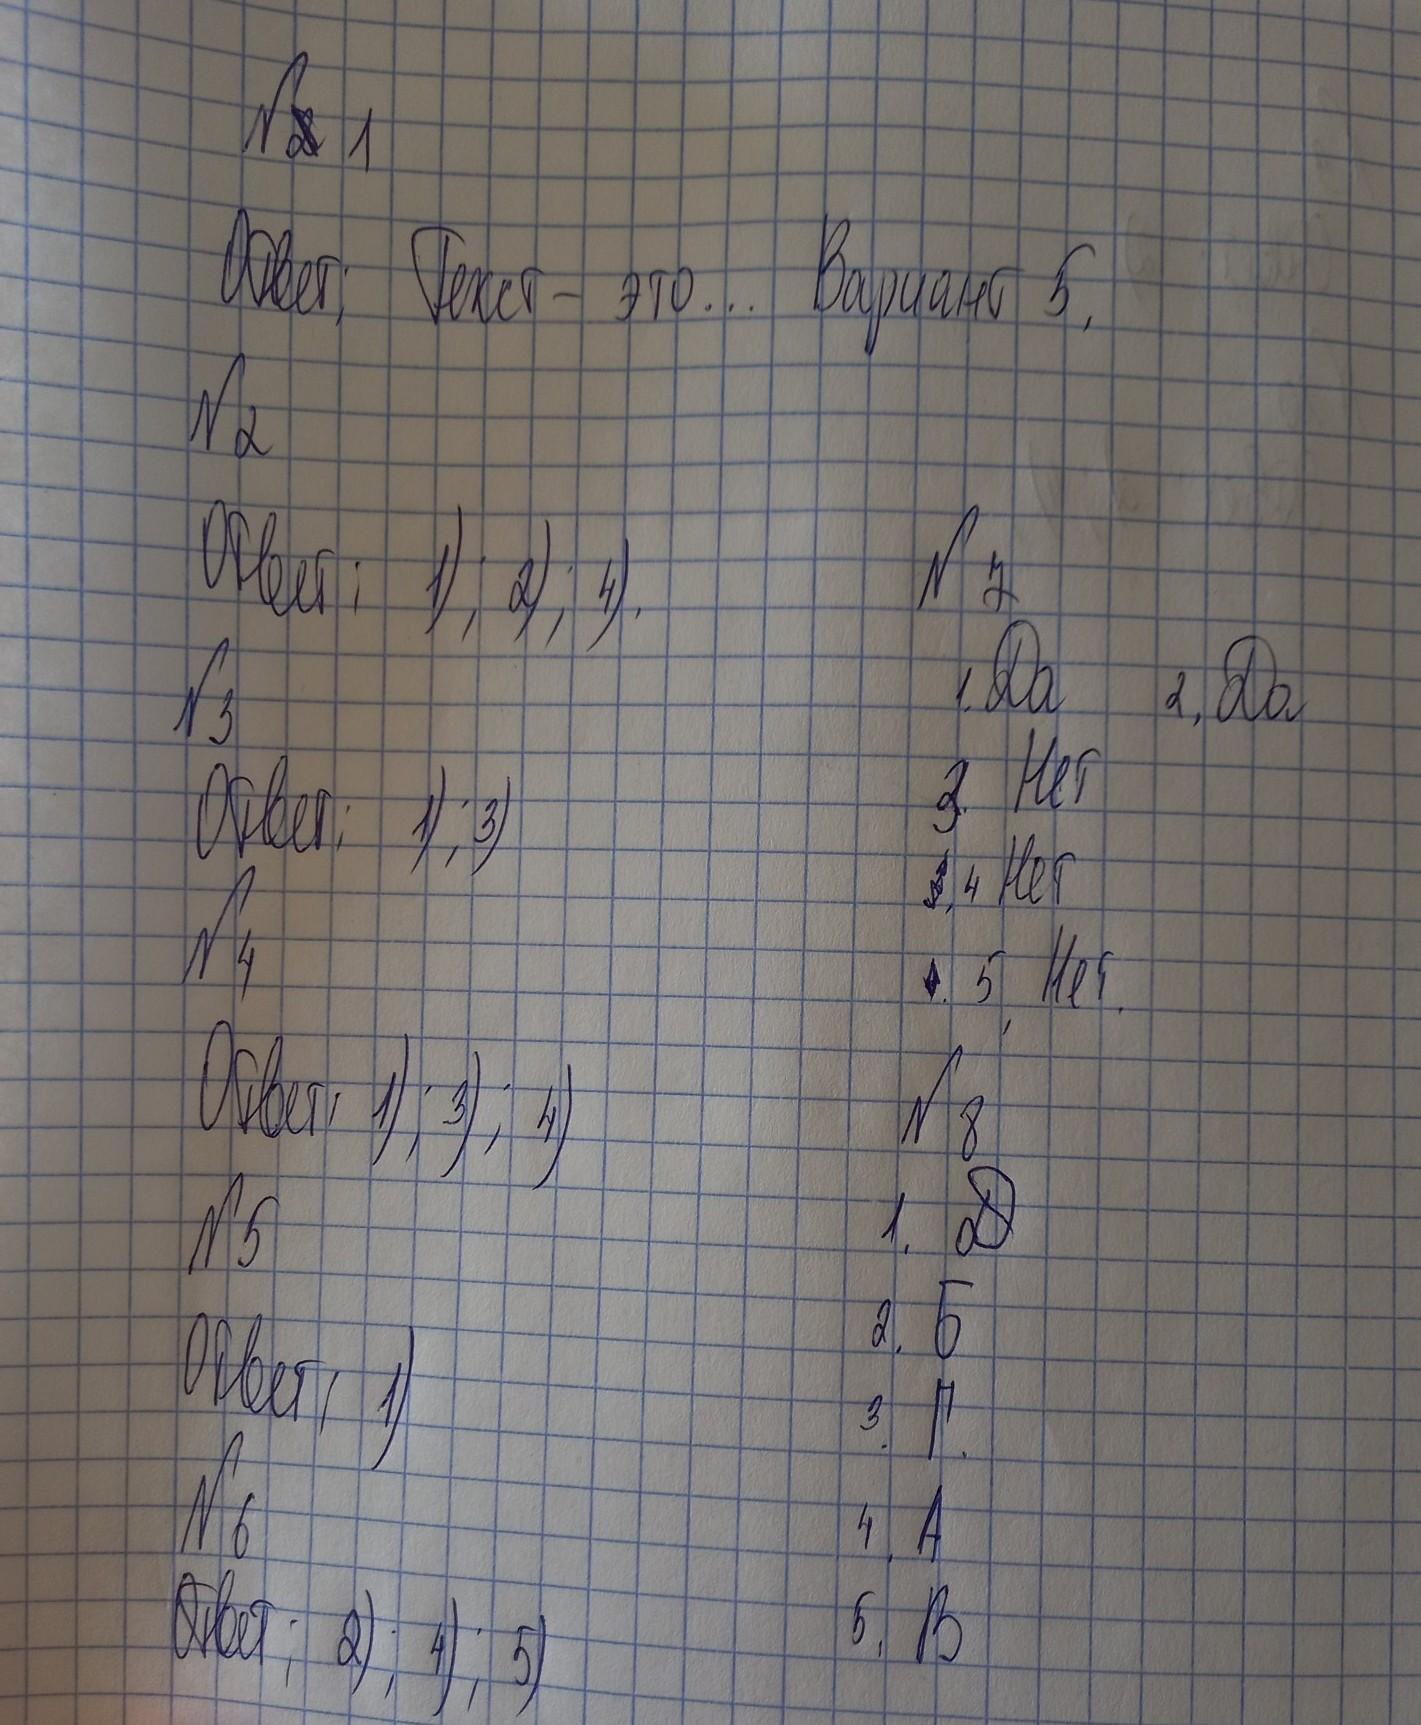 № 1
Ответ: Текст - это... Вариант 5.
N 2
Ответ: 1); 2); 4).
N 3
Ответ: 1); 3)
N 4
Ответ: 1); 3); 4)
N 5
Ответ: 1)
N 6
Ответ: 2); 4); 5)
N 7
1. Да 2. Да
3. Нет
4 Нет
5. Нет.
N 8
1. Д
2. Б
3. Г.
4. А
5. В